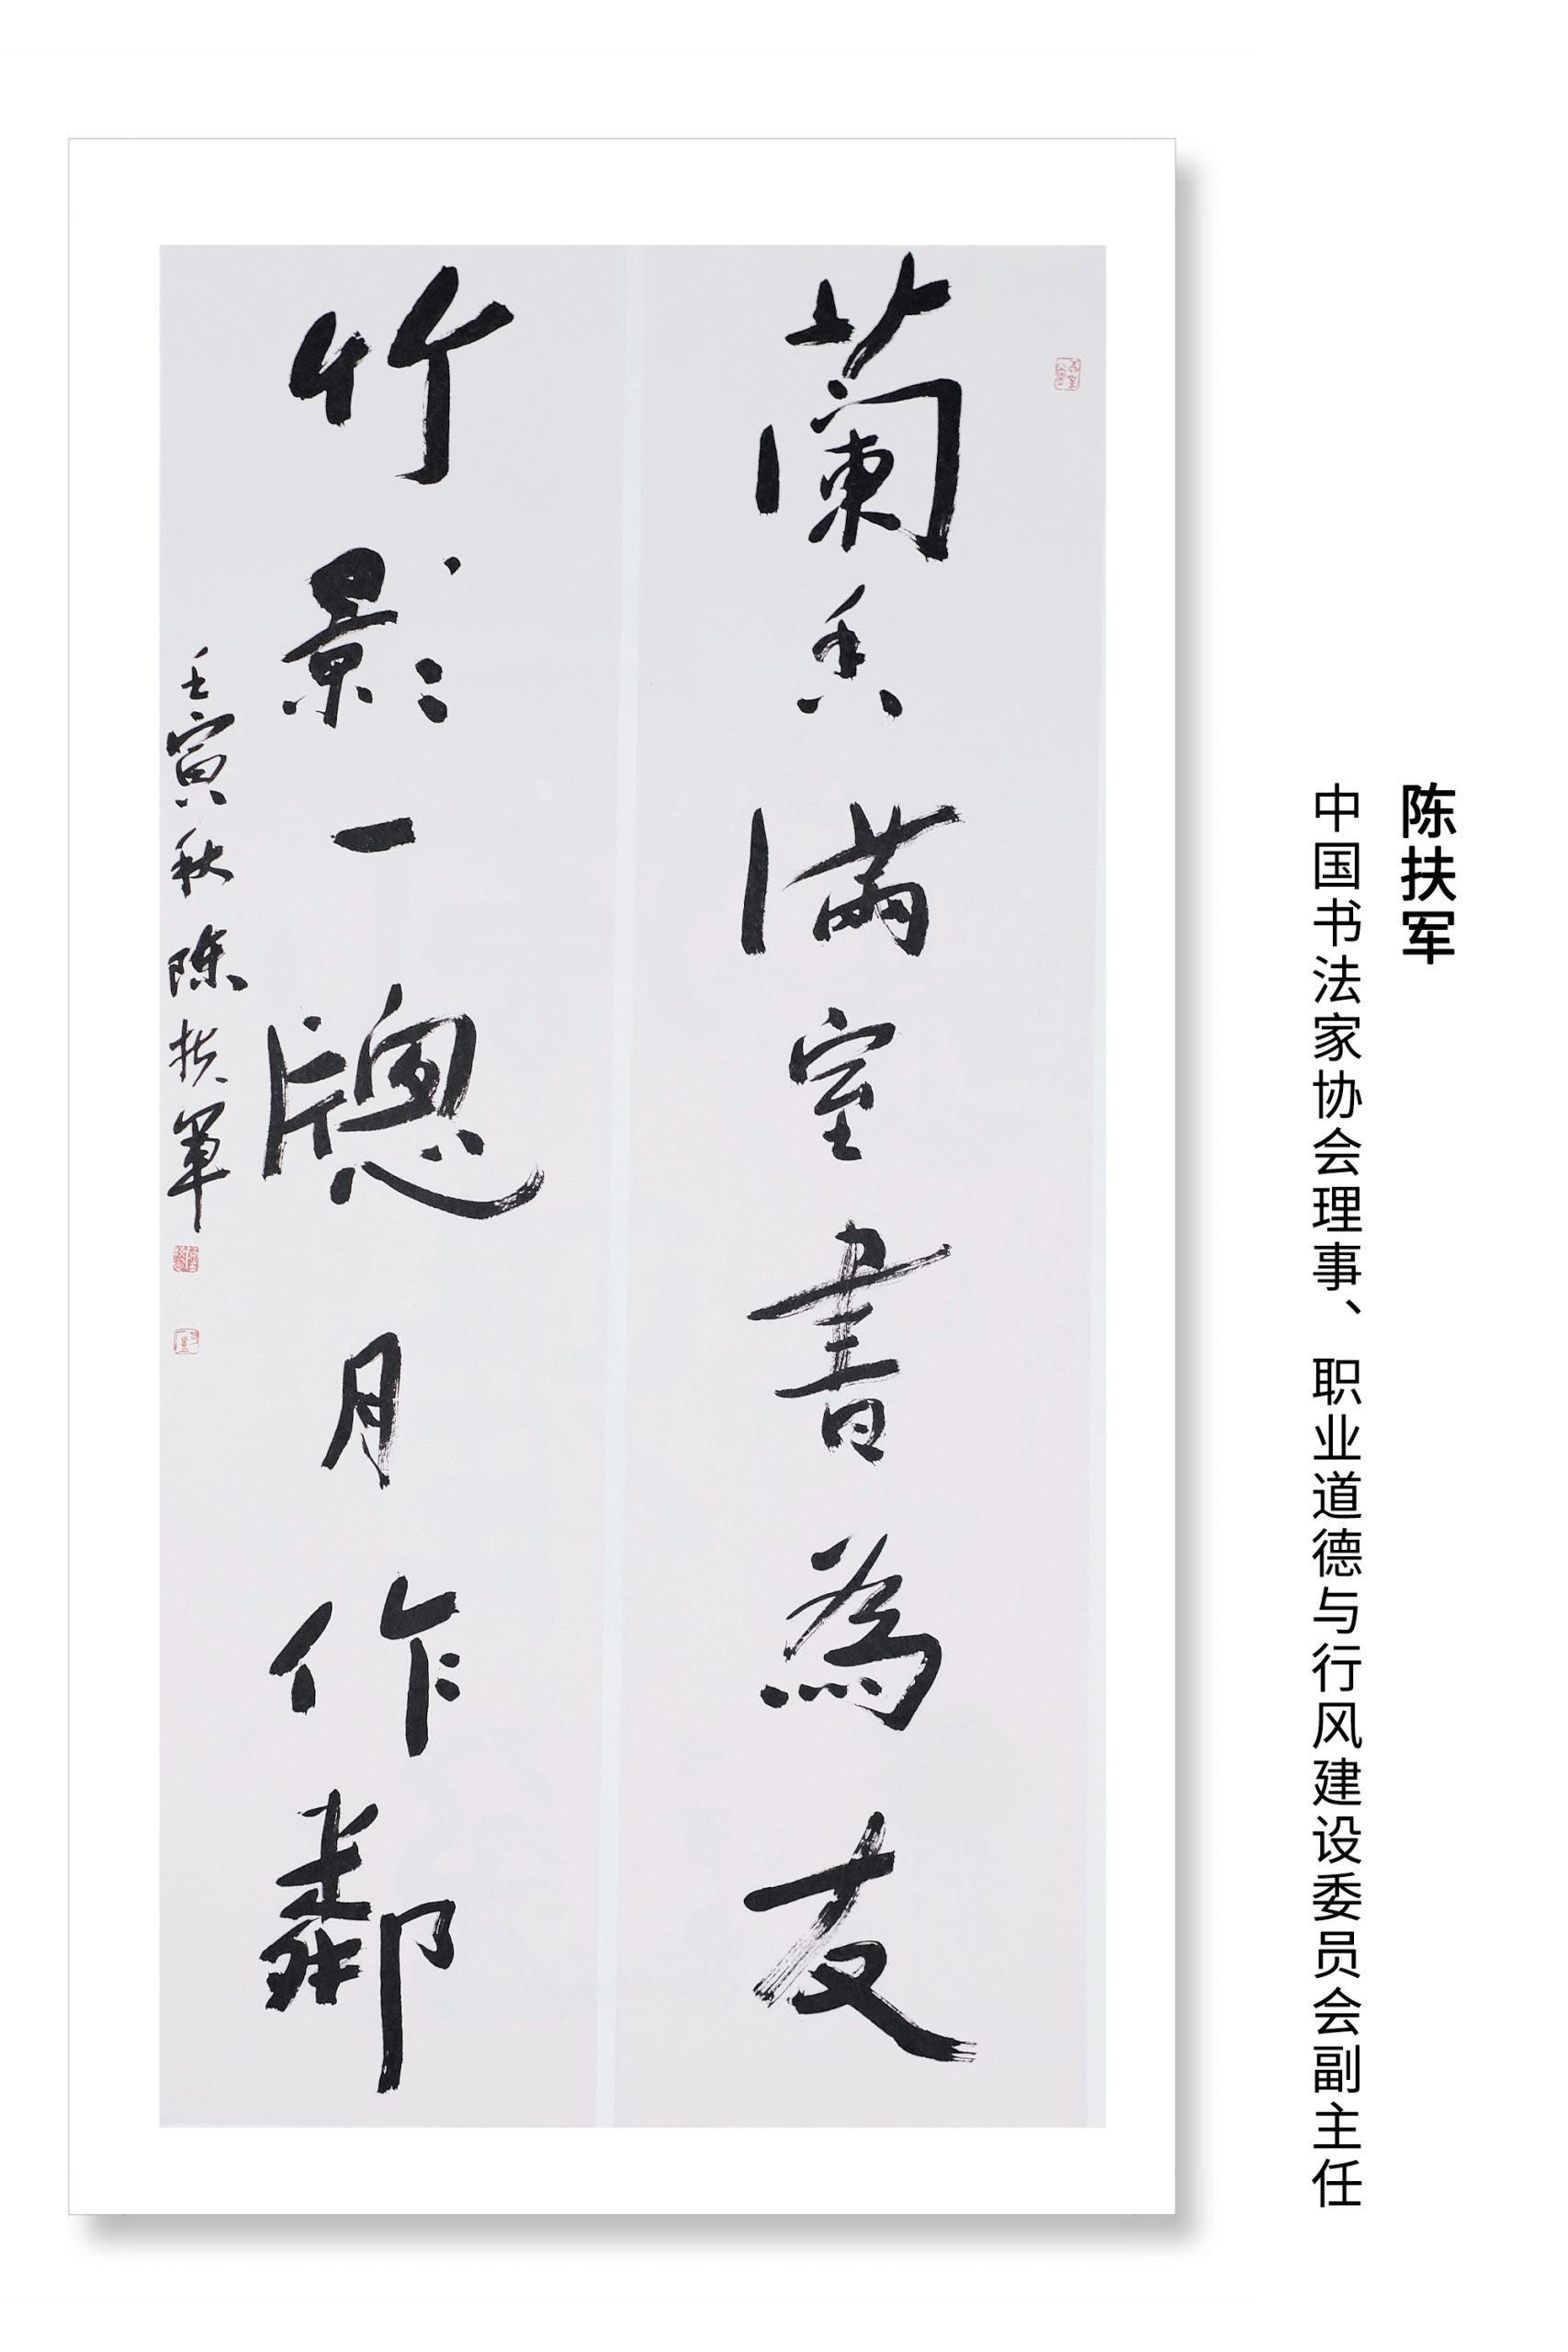 陈扶军
中国书法家协会理事、职业道德与行风建设委员会副主任
蘭香满室書為友
竹影一牕月作鄰
壬寅秋陈扶軍